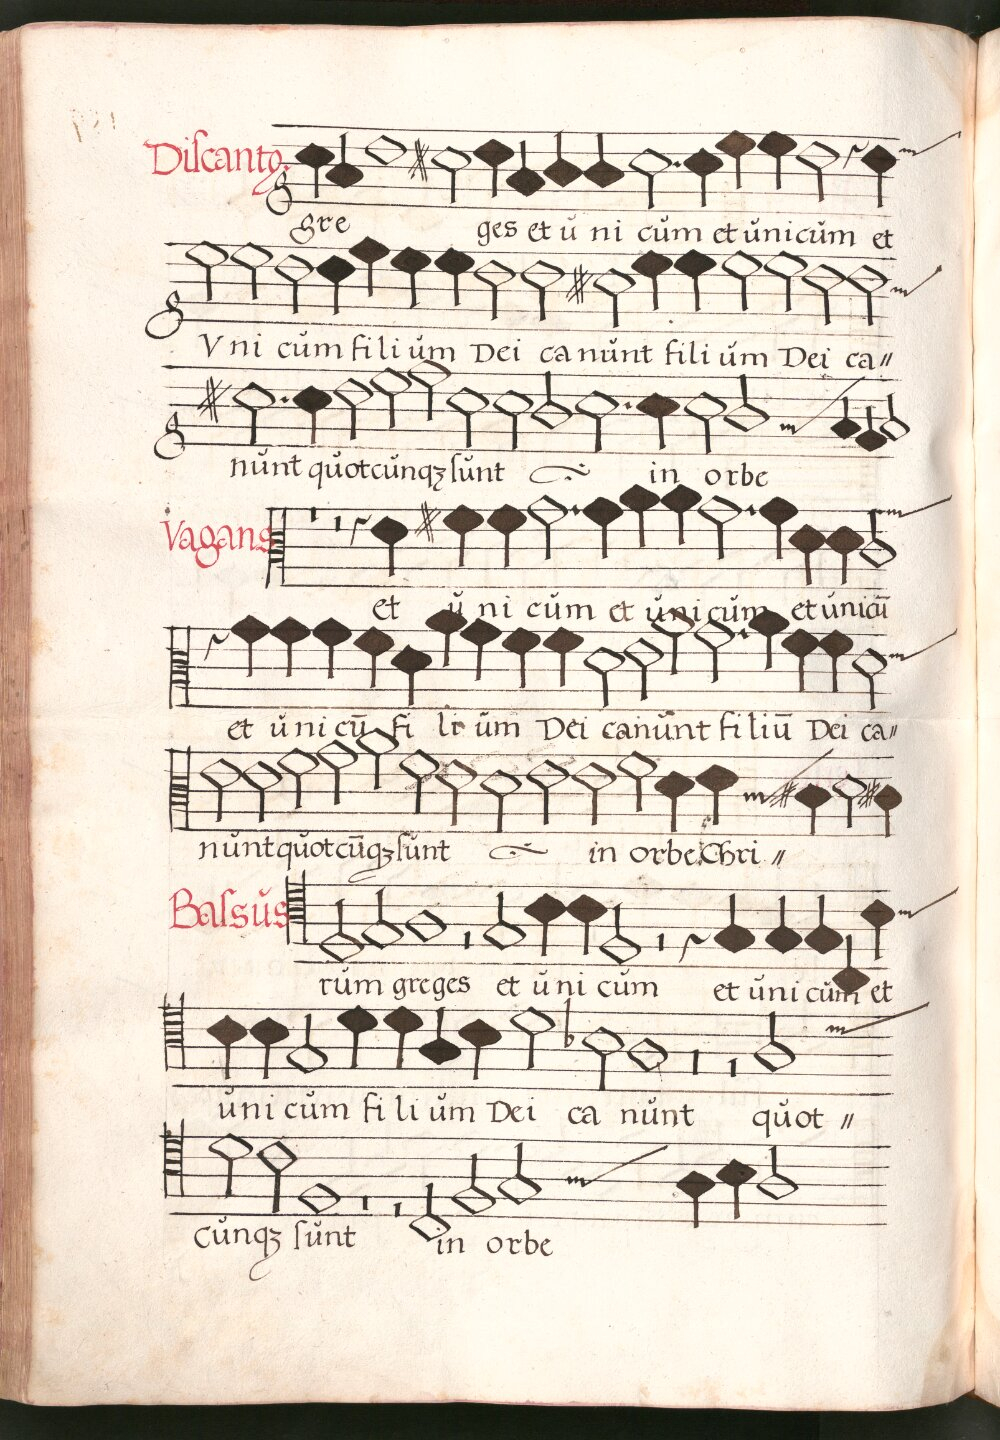 Discanto.
gre ges et u ni cum et unicum et
Vni cum fi li um Dei ca nunt fili um Dei ca〃
nunt quotcunqꝫ sunt in orbe
Vagans
et u ni cum et unicum et unicū
et uni cū fi li um Dei canunt filiū Dei ca〃
nuntquotcūqꝫ sunt in orbe Chri〃
Bassus
rum greges et uni cum et uni cum et
uni cum fi li um Dei ca nunt quot〃
cunqꝫ sunt in orbe